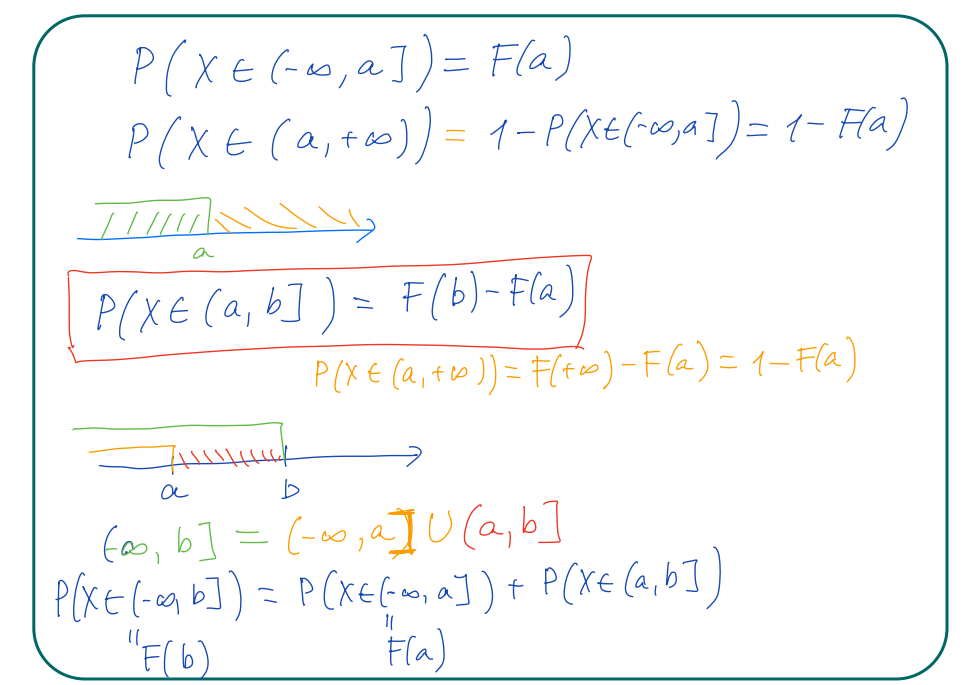 P(X ∈ (-∞, a]) = F(a)
P(X ∈ (a, +∞)) = 1 - P(X∈(-∞,a]) = 1 - F(a)
a
P(X ∈ (a, b]) = F(b) - F(a)
P(X ∈ (a, +∞)) = F(+∞) - F(a) = 1 - F(a)
a b
(-∞, b] = (-∞, a] ∪ (a, b]
P(X∈(-∞, b]) = P(X∈(-∞, a]) + P(X∈(a, b])
" "
F(b) F(a)